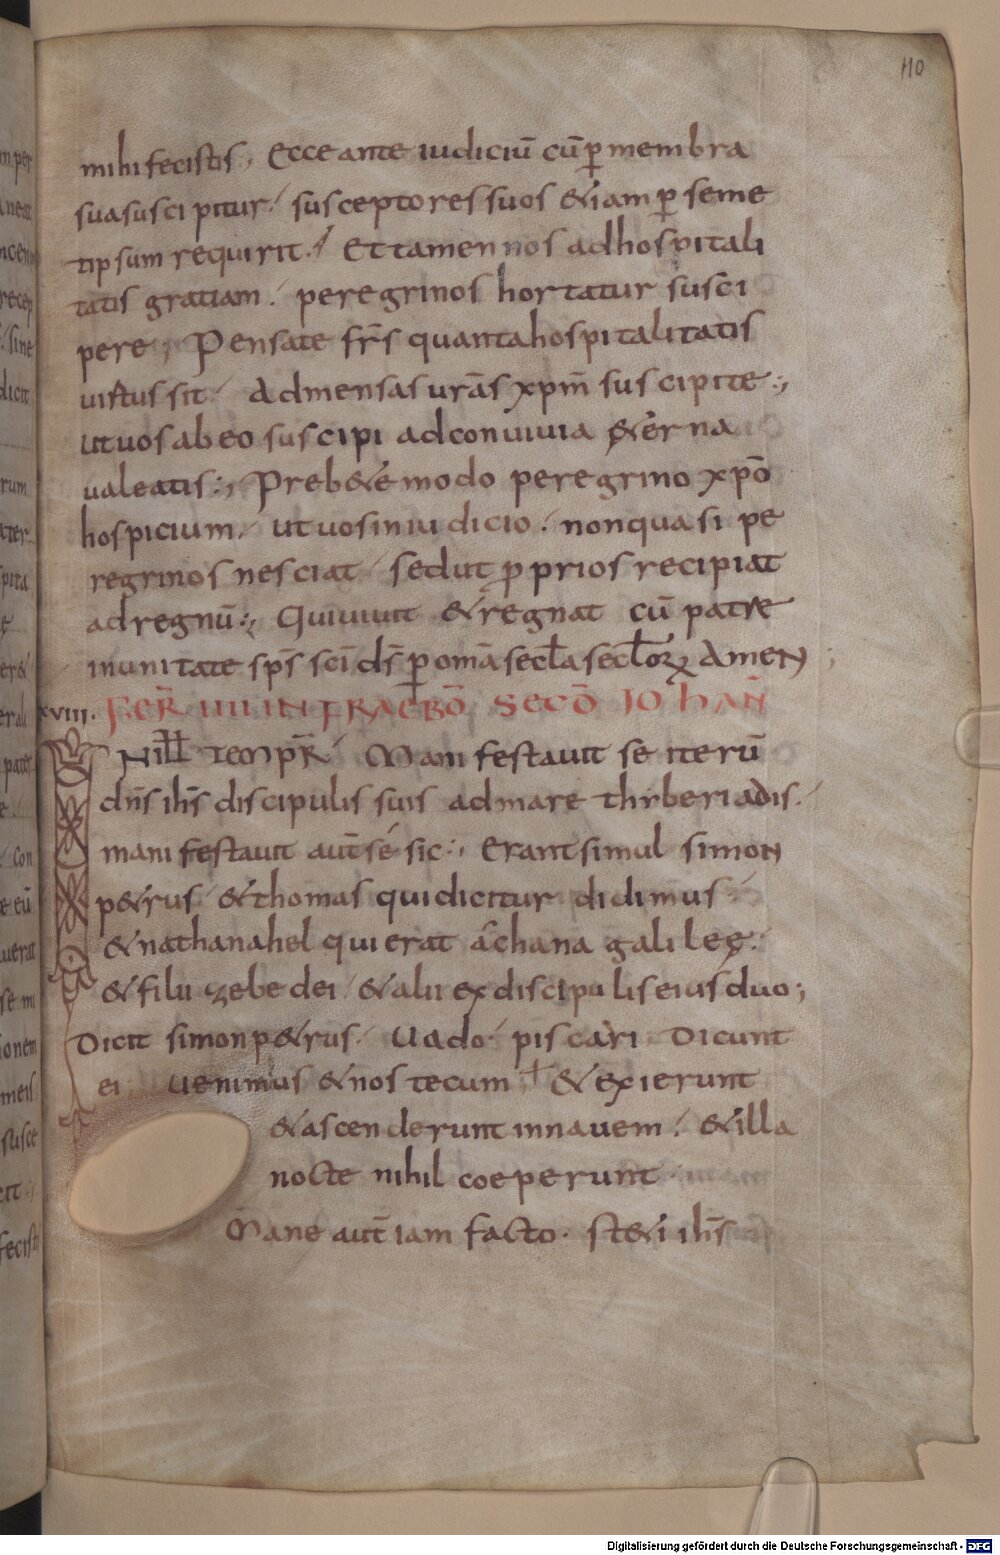 110
mihi fecistis; Ecce ante iudiciū cū ꝑ membra
sua suscipitur / susceptores suos &iam ꝑ seme
tipsum requirit ./ Et tamen nos ad hospitali
tatis gratiam . peregrinos hortatur susci
pere ; Pensate frs̄ quanta hospitalitatis
uirtus sit / Ad mensas urās xpm̄ suscipite :,
ut uos ab eo suscipi ad conuiuia &erna
ualeatis :, Preb&e modo peregrino xpō
hospicium . ut uos in iudicio . non quasi pe
regrinos nesciat / sed ut ꝓprios recipiat
ad regnū :, Qui uiuit & regnat cū patre
in unitate sps̄ sci̅ ds̄ ꝑ omā secl̄a secl̄oꝝ Amen ;
xviii. FER̄ IIII INFRA EBD̄ SECD̄ IOHAN̄
IN ill̄ tempr̄ / Manifestauit se iterū
dn̄s ihs̄ discipulis suis ad mare thiberiadis .
manifestauit aut̄ sé sic :, Erant simul simon
p&rus / & thomas qui dicitur didimus
& nathanahel qui erat a chana galileę .
& filii zebedei / & alii ex discipulis eius duo ;
Dicit simon p&rus . Uado piscari Dicunt
ei uenimus & nos tecum & exierunt
& ascenderunt in nauem . & illa
nocte nihil coeperunt
Mane aut̄ iam facto . st&i ihs̄
Digitalisierung gefördert durch die Deutsche Forschungsgemeinschaft - DFG